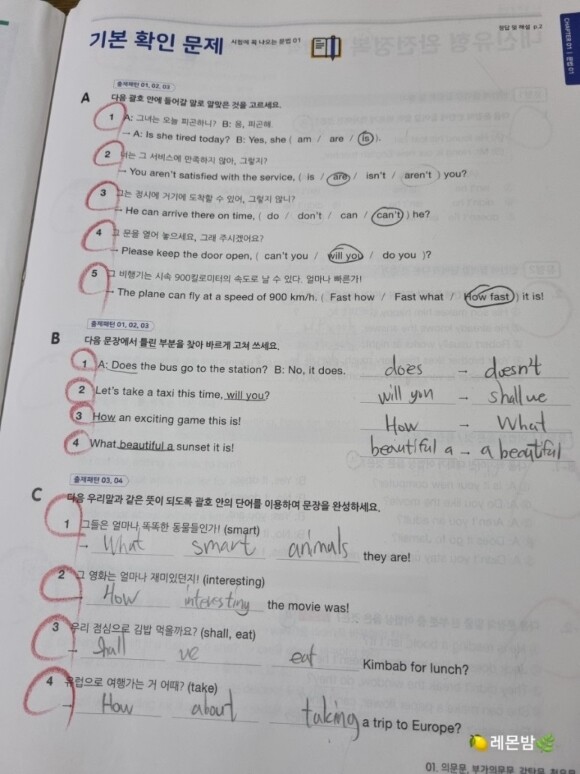 정답 및 해설 p.2
기본 확인 문제 시험에 꼭 나오는 문법 01
CHAPTER 01 | 문법 01
출제패턴 01, 02, 03
A 다음 괄호 안에 들어갈 말로 알맞은 것을 고르세요.
1 A: 그녀는 오늘 피곤하니? B: 응, 피곤해.
→ A: Is she tired today? B: Yes, she ( am / are / is ).
2 너는 그 서비스에 만족하지 않아, 그렇지?
→ You aren't satisfied with the service, ( is / are / isn't / aren't ) you?
3 그는 정시에 거기에 도착할 수 있어, 그렇지 않니?
→ He can arrive there on time, ( do / don't / can / can't ) he?
4 그 문을 열어 놓으세요, 그래 주시겠어요?
→ Please keep the door open, ( can't you / will you / do you )?
5 그 비행기는 시속 900킬로미터의 속도로 날 수 있다. 얼마나 빠른가!
→ The plane can fly at a speed of 900 km/h. ( Fast how / Fast what / How fast ) it is!
출제패턴 01, 02, 03
B 다음 문장에서 틀린 부분을 찾아 바르게 고쳐 쓰세요.
1 A: Does the bus go to the station? B: No, it does. does → doesn't
2 Let's take a taxi this time, will you? will you → shall we
3 How an exciting game this is! How → What
4 What beautiful a sunset it is! beautiful a → a beautiful
출제패턴 03, 04
C 다음 우리말과 같은 뜻이 되도록 괄호 안의 단어를 이용하여 문장을 완성하세요.
1 그들은 얼마나 똑똑한 동물들인가! (smart)
→ What smart animals they are!
2 그 영화는 얼마나 재미있던지! (interesting)
How interesting the movie was!
3 우리 점심으로 김밥 먹을까요? (shall, eat)
→ Shall we eat Kimbab for lunch?
4 유럽으로 여행가는 거 어때? (take)
→ How about taking a trip to Europe?
🍋 레몬밤🌿
01. 의문문, 부가의문문, 감탄문,